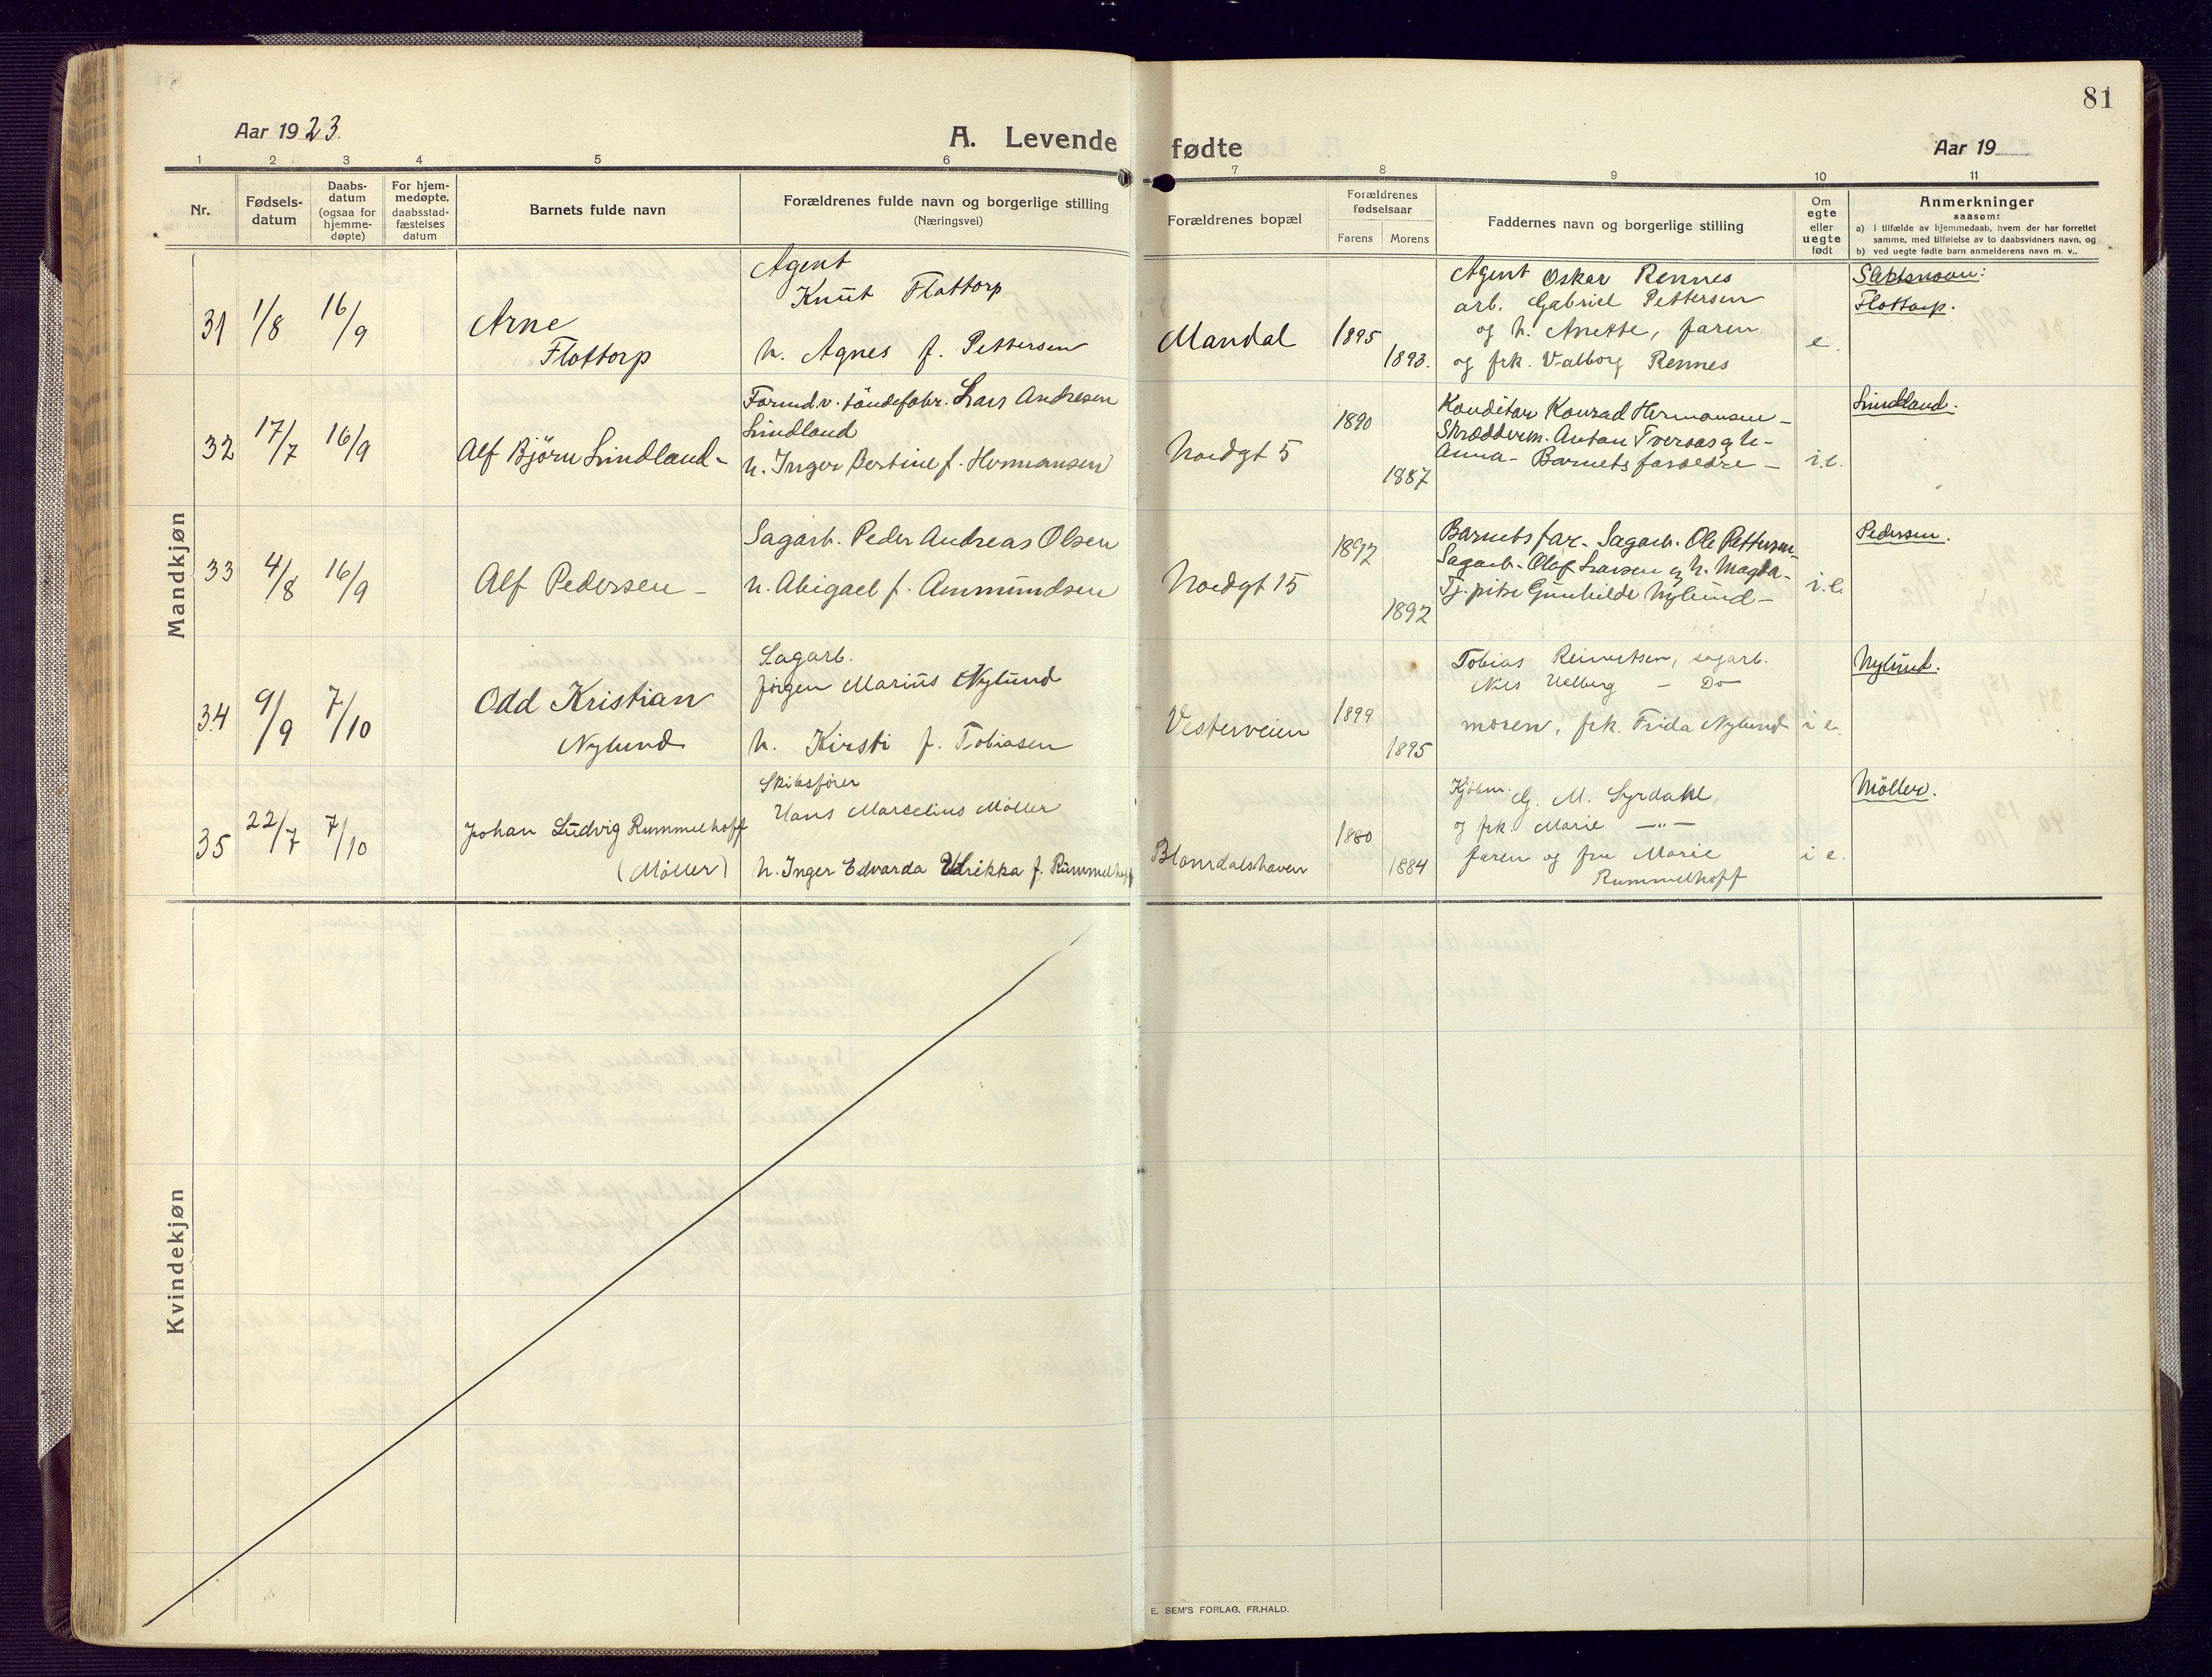 81
Aar 1923.
A. Levende fødte
Aar 19
1 2 3 4 5 6 7 8 9 10 11
Nr.
Fødsels-
datum
Daabs-
datum
(ogsaa for
hjemme-
døpte)
For hjem-
medøpte,
daabsstad-
fæstelses
datum
Barnets fulde navn
Forældrenes fulde navn og borgerlige stilling
(Næringsvei)
Forældrenes bopæl
Forældrenes
fødselsaar
Farens Morens
Faddernes navn og borgerlige stilling
Om
egte
eller
uegte
født
Anmerkninger
saasom:
a) i tilfælde av hjemmedaab, hvem der har forrettet
samme, med tilføielse av to daabsvidners navn, og
b) ved uegte fødte barn anmelderens navn m. v..
Mandkjøn
31 1/8 16/9
Arne
Flottorp
Agent
Knut Flottorp
h. Agnes f. Pettersen
Mandal
1895
1893.
Agent Oskar Rennes
arb. Gabriel Pettersen
og h. Anette, faren
og frk. Valborg Rennes
e.
Slektsnavn:
Flottorp.
32 17/7 16/9
Alf Björn Lindland-
Formd. v. töndefabr. Lars Andresen
Lindland
h. Inger Bertine f. Hermansen
Nordgt 5
1890
1887
Konditor Konrad Hermansen -
Skrædderm. Anton Tversas g h-
Anna - Barnets foræeldre -
i.e.
Lindland.
33 4/8 16/9
Alf Pedersen -
Sagarb. Peder Andreas Olsen
h. Abigael f. Ammundsen
Nordgt 15
1892
1892
Barnets far - Sagarb. Ole Pettersen-
Sagarb. Olaf Larsen og h. Magda-
Tj. pike Gunhilde Nylund-
i.e.
Pedersen.
34 9/9 7/10
Odd Kristian
Nylund
Sagarb.
Jørgen Marius Nylund
h. Kirsti f. Tobiasen
Vesterveien
1899
1895
Tobias Reiertsen, sagarb.
Nils Uelberg - Do
moren, frk. Frida Nylund
i e.
Nylund.
35 22/7 7/10
Johan Ludvig Rummelhoff
(Møller)
Skibsfører
Hans Marcelius Møller
h. Inger Edvarda Ulrikka f. Rummelhoff
Blomdalshaven
1880
1884
Kjøbm. G. M. Syrdahl,
og frk. Marie -"-
faren og fru Marie
Rummelhoff
i e.
Möller.
Kvindekjøn
E. SEM'S FORLAG, FR.HALD.